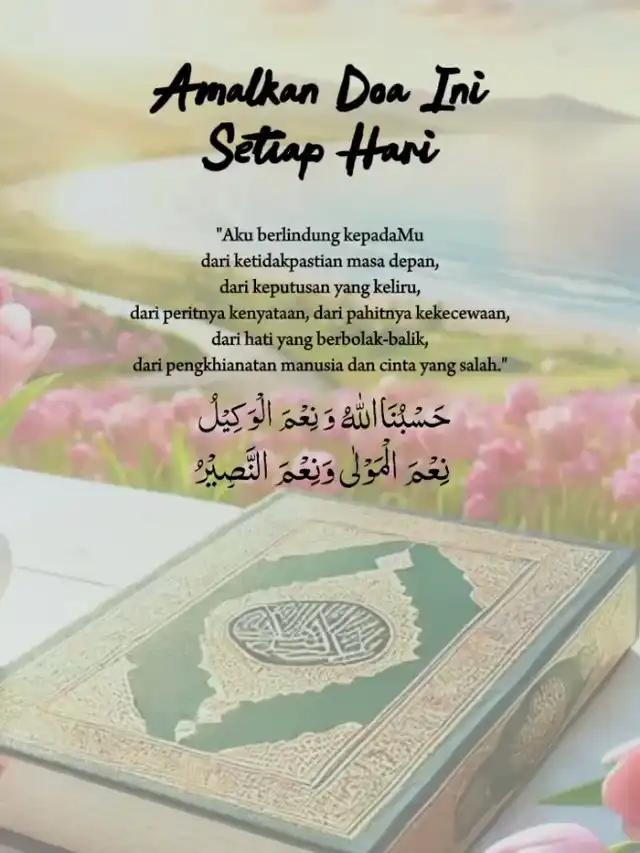 Amalkan Doa Ini
Setiap Hari
"Aku berlindung kepadaMu
dari ketidakpastian masa depan,
dari keputusan yang keliru,
dari peritnya kenyataan, dari pahitnya kekecewaan,
dari hati yang berbolak-balik,
dari pengkhianatan manusia dan cinta yang salah."
حَسْبُنَا اللّٰهُ وَنِعْمَ الْوَكِيْلُ
نِعْمَ الْمَوْلٰى وَنِعْمَ النَّصِيْرُ